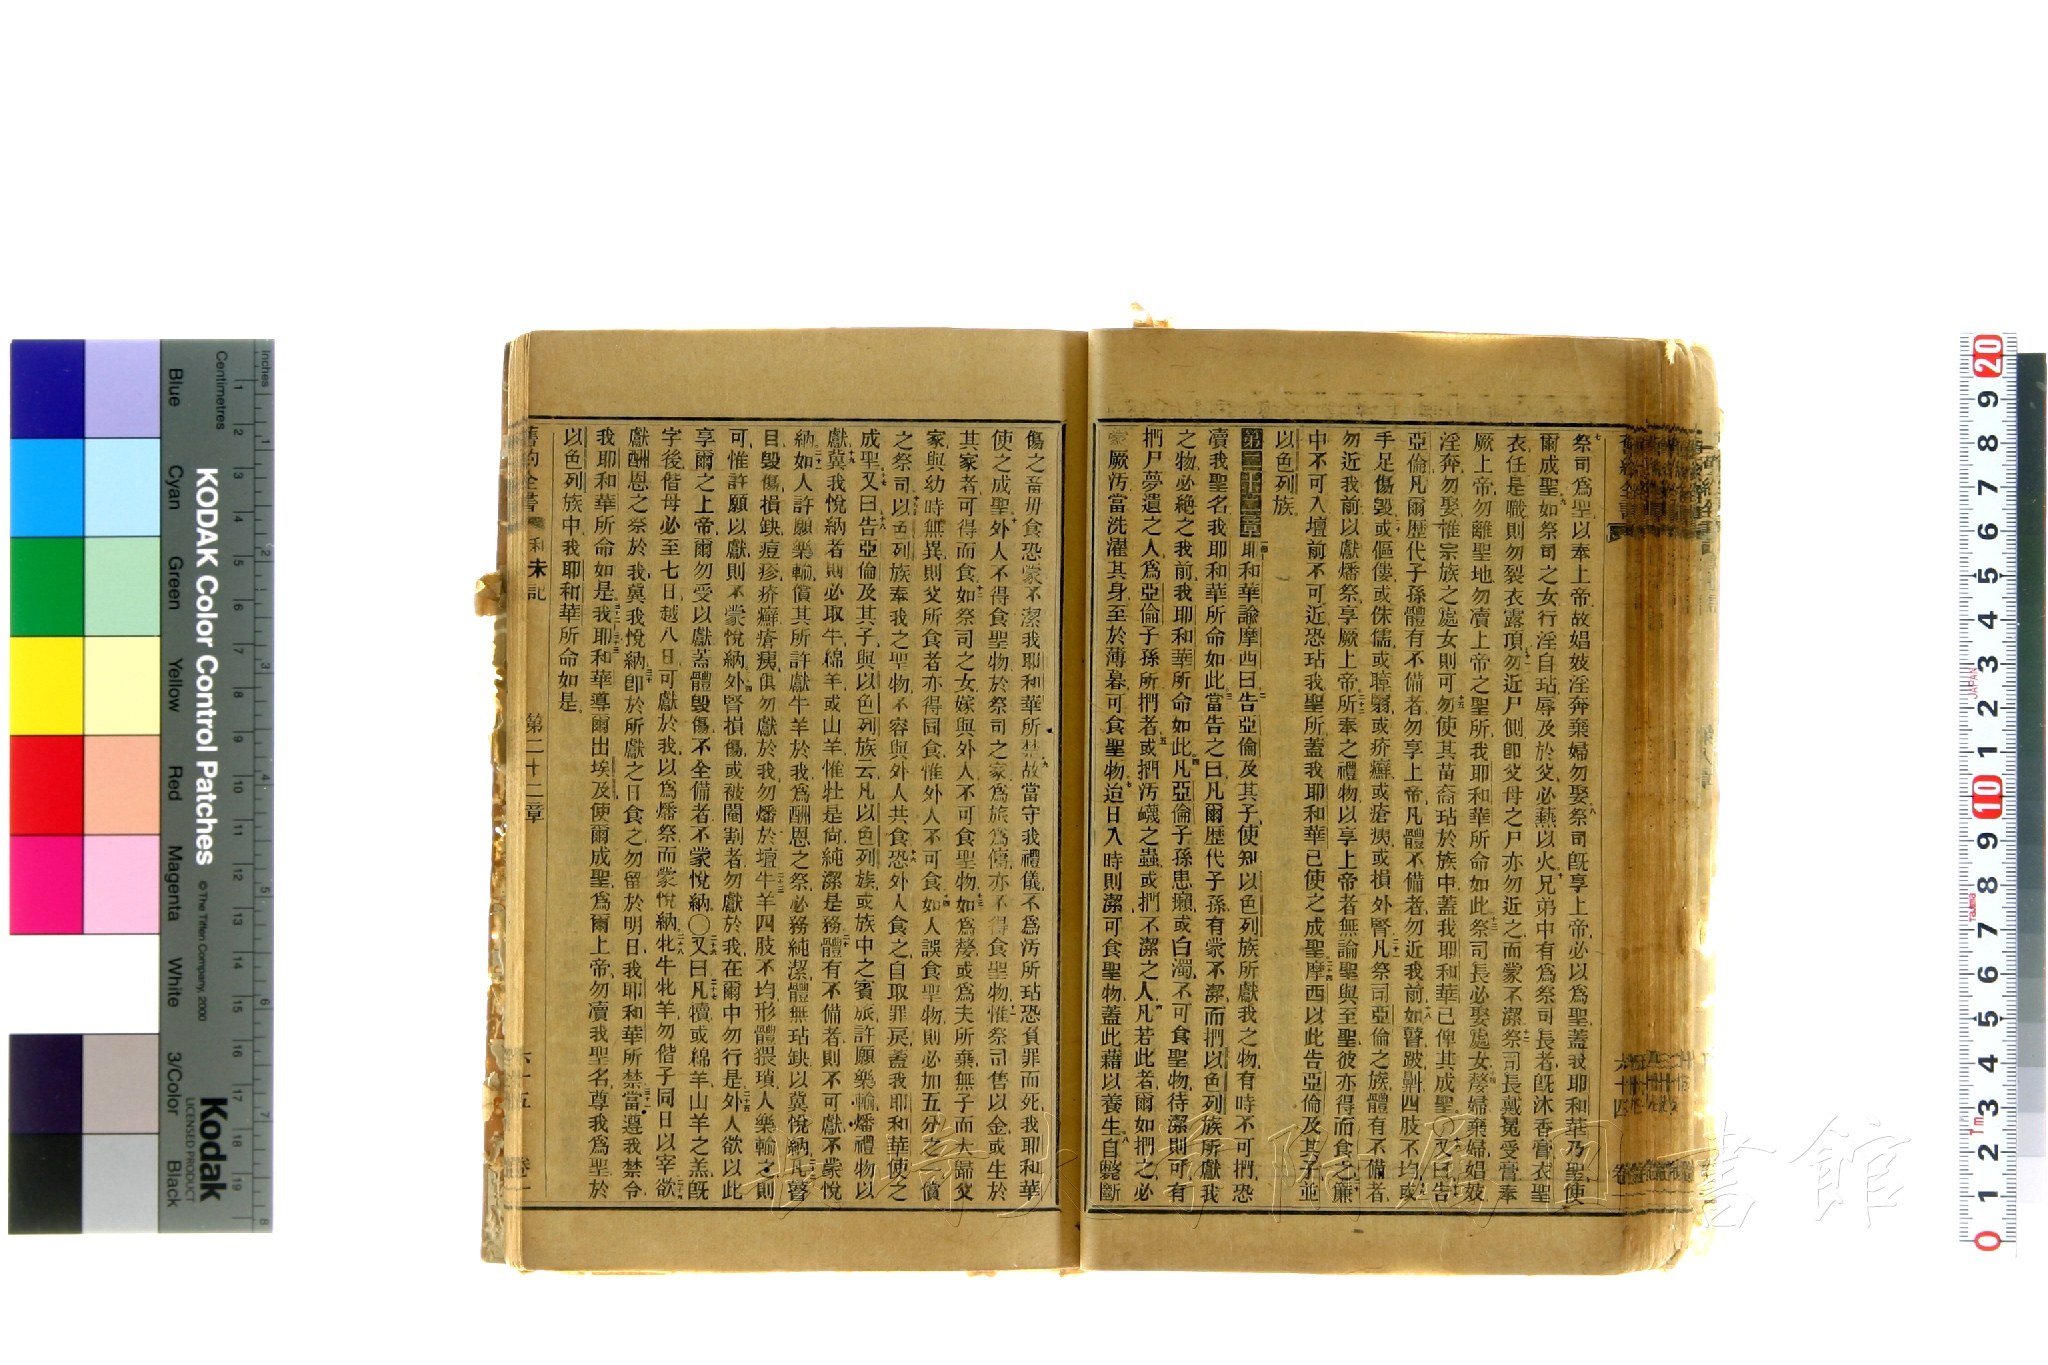 祭司爲聖以奉上帝故娼妓淫奔棄婦勿娶祭司旣享上帝必以爲聖蓋我耶和華乃聖使
爾成聖如祭司之女行淫自玷辱及於父必爇以火兄弟中有爲祭司長者旣沐香膏衣聖
衣任是職則勿裂衣露頂勿近尸側卽父母之尸亦勿近之而蒙不潔祭司長戴冕受膏奉
厥上帝勿離聖地勿瀆上帝之聖所我耶和華所命如此祭司長必娶處女嫠婦棄婦娼妓
淫奔勿娶惟宗族之處女則可勿使其苗裔玷於族中蓋我耶和華已俾其成聖〇又曰告
亞倫凡爾歷代子孫體有不備者勿享上帝凡體不備者勿近我前如瞽跛鼽四肢不均或
手足傷毀或傴僂或侏儒或矇翳或疥癬或瘡痍或損外腎凡祭司亞倫之族體有不備者
勿近我前以獻燔祭享厥上帝所奉之禮物以享上帝者無論聖與至聖彼亦得而食之簾
中不可入壇前不可近恐玷我聖所蓋我耶和華已使之成聖摩西以此告亞倫及其子並
以色列族
第二十二章 耶和華諭摩西曰告亞倫及其子使知以色列族所獻我之物有時不可捫恐
瀆我聖名我耶和華所命如此當告之曰凡爾歷代子孫有蒙不潔而捫以色列族所獻我
之物必絶之我前我耶和華所命如此凡亞倫子孫患癩或白濁不可食聖物待潔則可有
捫尸夢遺之人爲亞倫子孫所捫者或捫汚衊之蟲或捫不潔之人凡若此者爾如捫之必
蒙厥汚當洗濯其身至於薄暮可食聖物迨日入時則潔可食聖物蓋此藉以養生自斃斷
傷之畜毋食恐蒙不潔我耶和華所禁故當守我禮儀不爲汚所玷恐負罪而死我耶和華
使之成聖外人不得食聖物於祭司之家爲旅爲傭亦不得食聖物惟祭司售以金或生於
其家者可得而食如祭司之女嫁與外人不可食聖物如爲嫠或爲夫所棄無子而大歸父
家與幼時無異則父所食者亦得同食惟外人不可食如人誤食聖物則必加五分之一償
之祭司以色列族奉我之聖物不容與外人共食恐外人食之自取罪戾蓋我耶和華使之
成聖又曰告亞倫及其子與以色列族云凡以色列族或族中之賓旅許願樂輸燔禮物以
獻冀我悅納者則必取牛綿羊或山羊惟牡是尙純潔是務體有不備者則不可獻不蒙悅
納如人許願樂輸償其所許獻牛羊於我爲酬恩之祭必務純潔體無玷缺以冀悅納凡瞽
目毀傷損缺痘疹疥癬瘡痍俱勿獻於我勿燔於壇牛羊四肢不均形體猥瑣人樂輸之則
可惟許願以獻則不蒙悅納外腎損傷或被閹割者勿獻於我在爾中勿行是外人欲以此
享爾之上帝爾勿受以獻蓋體毀傷不全備者不蒙悅納〇又曰凡犢或綿羊山羊之羔旣
字後偕母必至七日越八日可獻於我以爲燔祭而蒙悅納牝牛牝羊勿偕子同日以宰欲
獻酬恩之祭於我冀我悅納卽於所獻之日食之勿留於明日我耶和華所禁當遵我禁令
我耶和華所命如是我耶和華導爾出埃及使爾成聖爲爾上帝勿瀆我聖名尊我爲聖於
以色列族中我耶和華所命如是
舊約全書 利未記 第二十二章 六十五 卷一
KODAK Color Control Patches
© The Tiffen Company, 2000
Kodak
LICENSED PRODUCT
Inches
Centimetres
Blue
Cyan
Green
Yellow
Red
Magenta
White
3/Color
Black
JAPAN